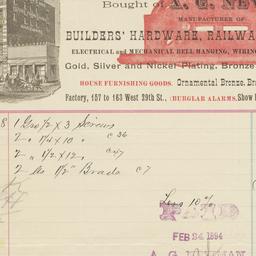 Bought of A. G. NEW
MANUFACTURER OF
BUILDERS' HARDWARE, RAILWA
ELECTRICAL and MECHANICAL BELL HANGING, WIRING
Gold, Silver and Nickel Plating, Bronze
HOUSE FURNISHING GOODS. Ornamental Bronze, Br
Factory, 157 to 163 West 29th St., BURGLAR ALARMS. Show
8 1 Gro 1/2 x 3 Screws
2 " 1/4 x 10 " c36
2 " 1/2 x 12 " c47
2 lbs 1 1/2" Brads c7
Less 10%
PAID
FEB 24 1894
A. G. NEWMAN